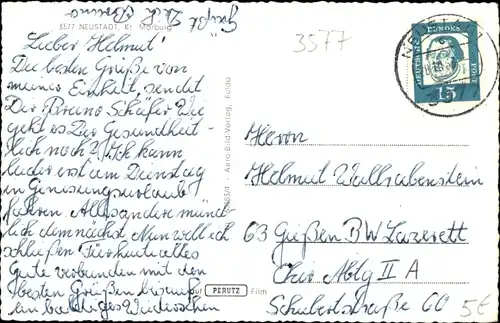 Grüßt Dich Bruno
3577 NEUSTADT, Kr. Marburg
3577
Lieber Helmut!
Die besten Grüße von
meiner Einheit, sendet
Dir Bruno Schäfer Wie
geht es Dir Gesundheit-
lich noch? Ich kann
leider erst am Dienstag
in Genesungsurlaub
fahren. Alles andere münd-
lich demnächst. Nun will ich
schließen Für heute alles
Gute verbunden mit den
besten Grüßen bis
ein baldiges Wiedersehen
Aero-Bild-Verlag, Fulda
auf PERUTZ Film
DEUTSCHE BUNDESPOST
15
Herrn
Helmut Wallrabenstein
63 Gießen BW Lazarett
Chir Abtg II A
Schubertstraße 60
5€